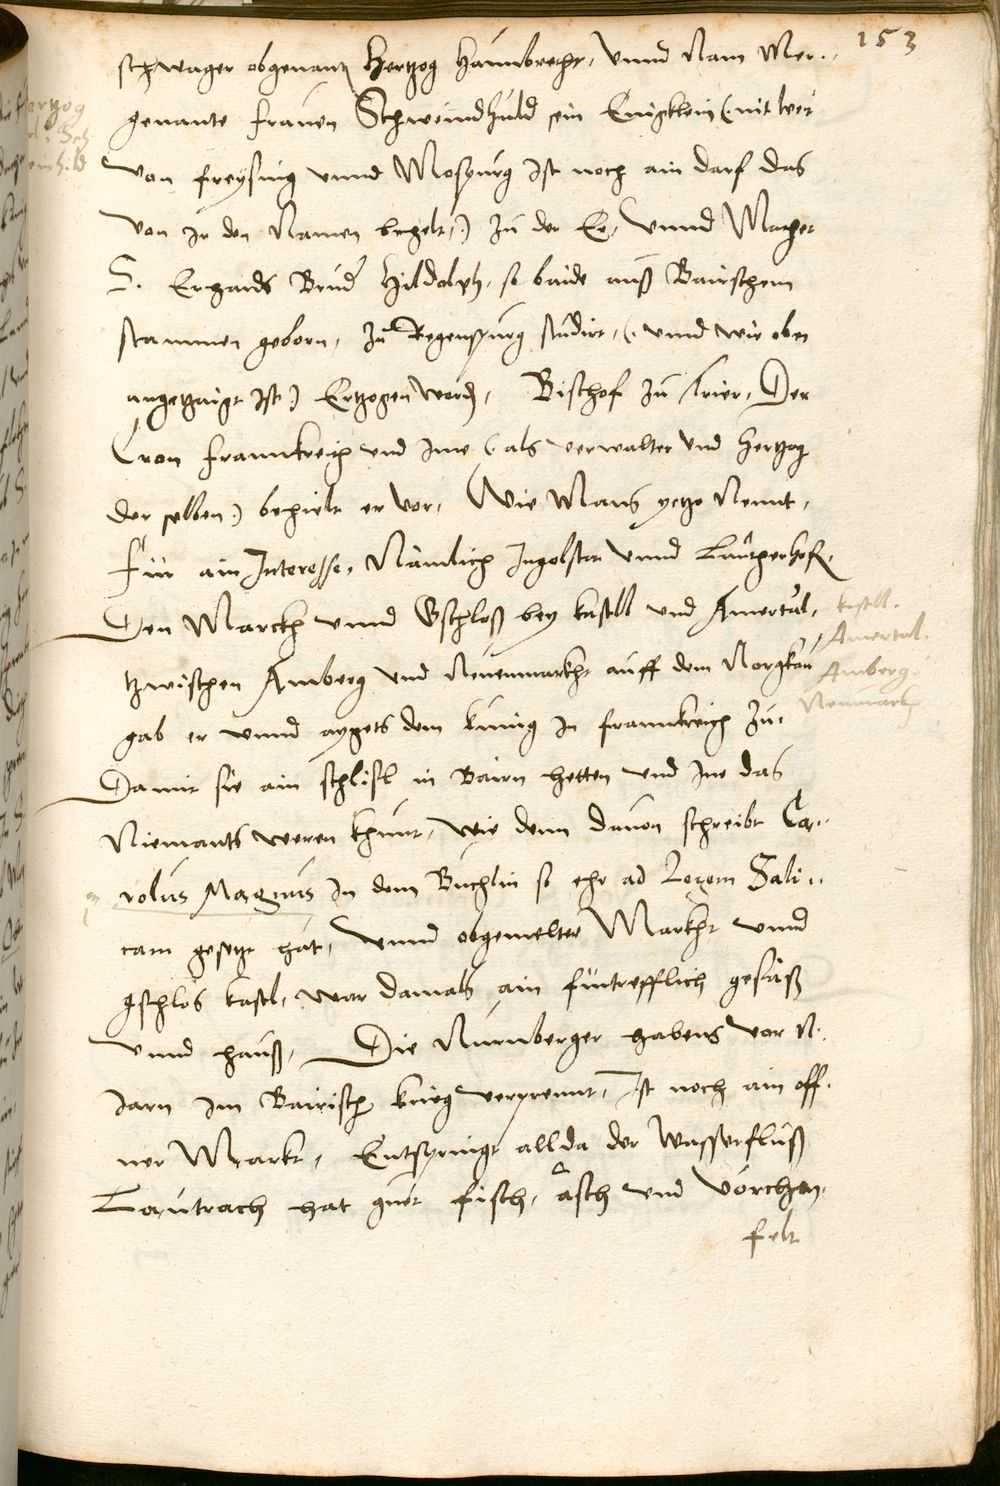 153
schwager obgenantz Hertzog Haunbrecht, vnnd Nam Mer..
genante frauen Schweindhuld sein Enigklein (: nit wer
von freysing vnnd Mospurg Ist noch ain darf das
von Ir den Namen behelt :) zu der Ee, vnnd Macher
S. Erhards Brud Hildolph, so baide auß Bairischem
stammen geborn, zu Regenspurg studirt, (: vnnd wie oben
angetzaigt Ist :) Ertzogen word, Bischof zu Trier, Den
Cron frannkreich vnd Ime (: als verwalter vnd Hertzog
der selben :) behielt er vor, Wie Mans yetzo Nennt,
Für ain Interesse, Nämlich Ingolstat vnnd Lauterhofe,
Den Marckh vnnd Gschloß bey kastl vnd Amertal,
tzwischen Amberg vnd Neuenmarkht auff dem Norgkau
gab er vnnd aygets dem künig In frannkreich zu,
Damit sie ain schlißl in Bairn hetten vnd Ine das
Niemants weren khunt, wie denn dauon schreibt Ca..
rolus Magnus In dem Buchlin so ehr ad Legem Sali..
cam gesetzt hat, vnnd obgemelter Markht vnnd
gschlos kastl, war damals ain fürtrefflich gesäß
vnnd hauß, Die Nurnberger habens vor N.
Jarn Im Bairisch krieg verprennt, Ist noch ain off..
ner Markt, Entspringt allda der Wasserfluß
Lautrach hat guet fisch, äsch vnd vörchen,
felt
kastl.
Amertal.
Amberg.
Neumarkh